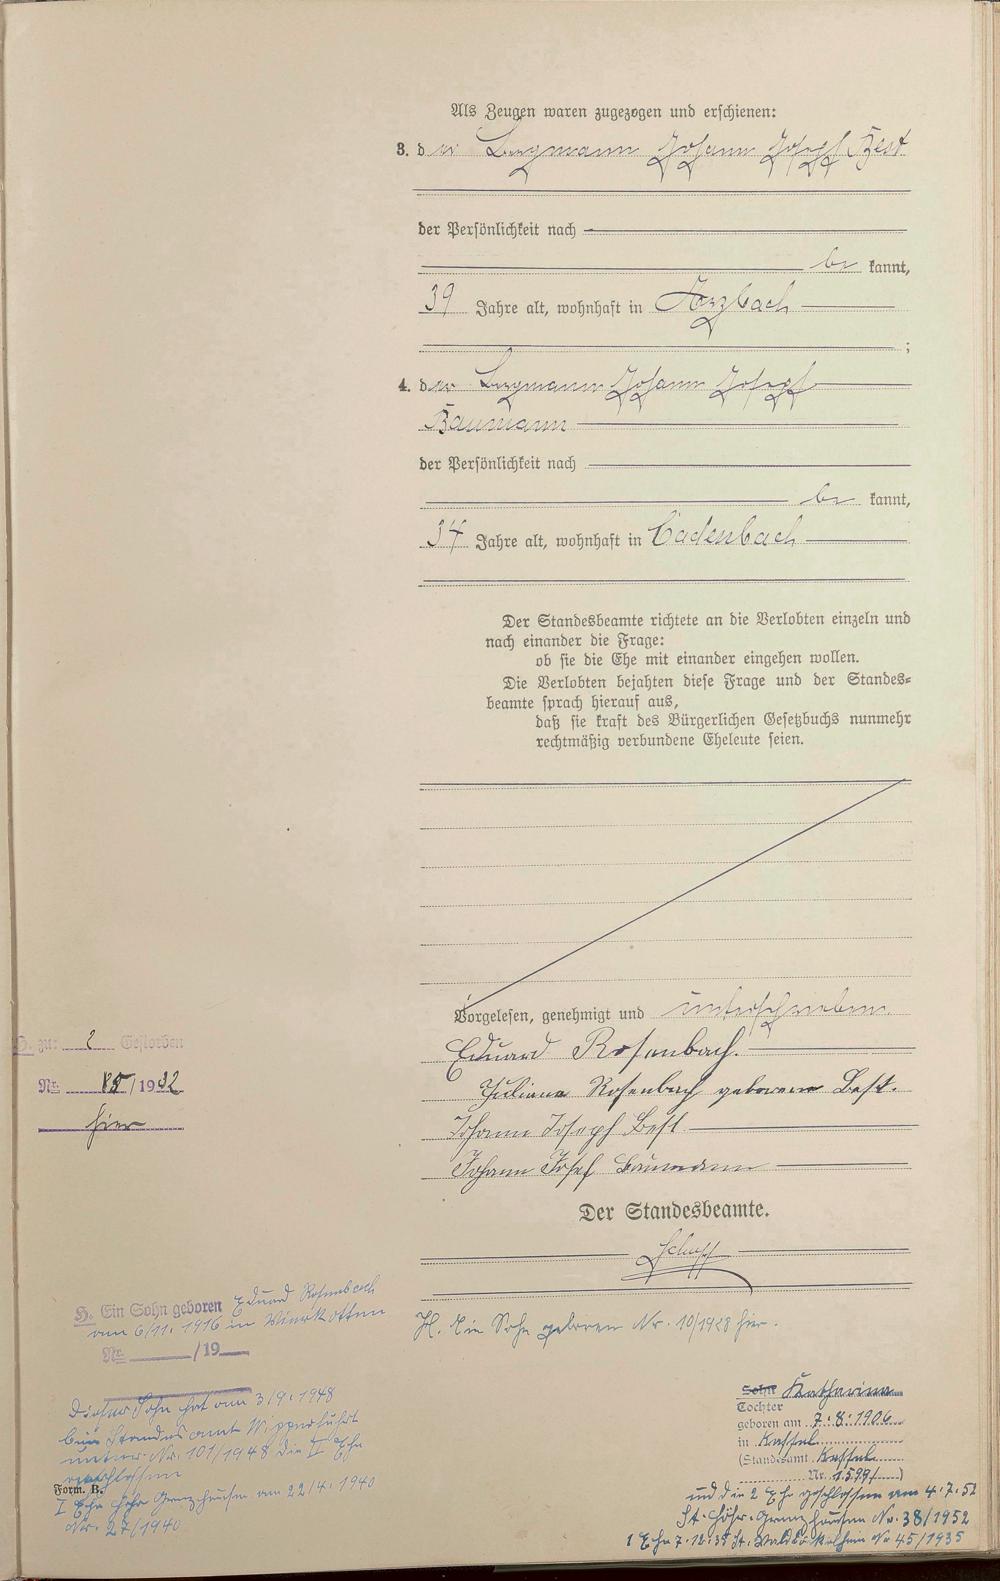 Als Zeugen waren zugezogen und erschienen:
3. der Bergmann Johann Joseph Best
der Persönlichkeit nach
be kannt,
39 Jahre alt, wohnhaft in Arzbach
;
4. der Bergmann Johann Joseph
Baumann
der Persönlichkeit nach
be kannt,
34 Jahre alt, wohnhaft in Cadenbach
Der Standesbeamte richtete an die Verlobten einzeln und
nach einander die Frage:
ob sie die Ehe mit einander eingehen wollen.
Die Verlobten bejahten diese Frage und der Standes-
beamte sprach hierauf aus,
daß sie kraft des Bürgerlichen Gesetzbuchs nunmehr
rechtmäßig verbundene Eheleute seien.
Vorgelesen, genehmigt und unterschrieben.
Eduard Rosenbach.
Juliana Rosenbach geborene Best.
Johann Joseph Best
Johann Josef Baumann
Der Standesbeamte.
H. zu: 2 Gestorben
Nr. 85/1932
hier
H. Ein Sohn geboren Eduard Rosenbach
am 6/11. 1916 in
Nr. /19
Dieser Sohn hat am 3/9. 1948
beim Standesamt Wipperfürth
unter Nr. 101/1948 die II Ehe
geschlossen
I Ehe Höhr Grenzhausen am 22/4. 1940
Nr. 27/1940
Form. B.
H. Ein Sohn geboren Nr. 10/1928 hier.
Sohn Katharina
Tochter
geboren am 7.8.1906
in Kassel
(Standesamt Kassel
Nr. 1599/ )
und die 2 Ehe geschlossen am 4.7.52
St. Höhr-Grenzhausen Nr. 38/1952
1 Ehe 7.12.35 St. Waldböckelheim Nr 45/1935